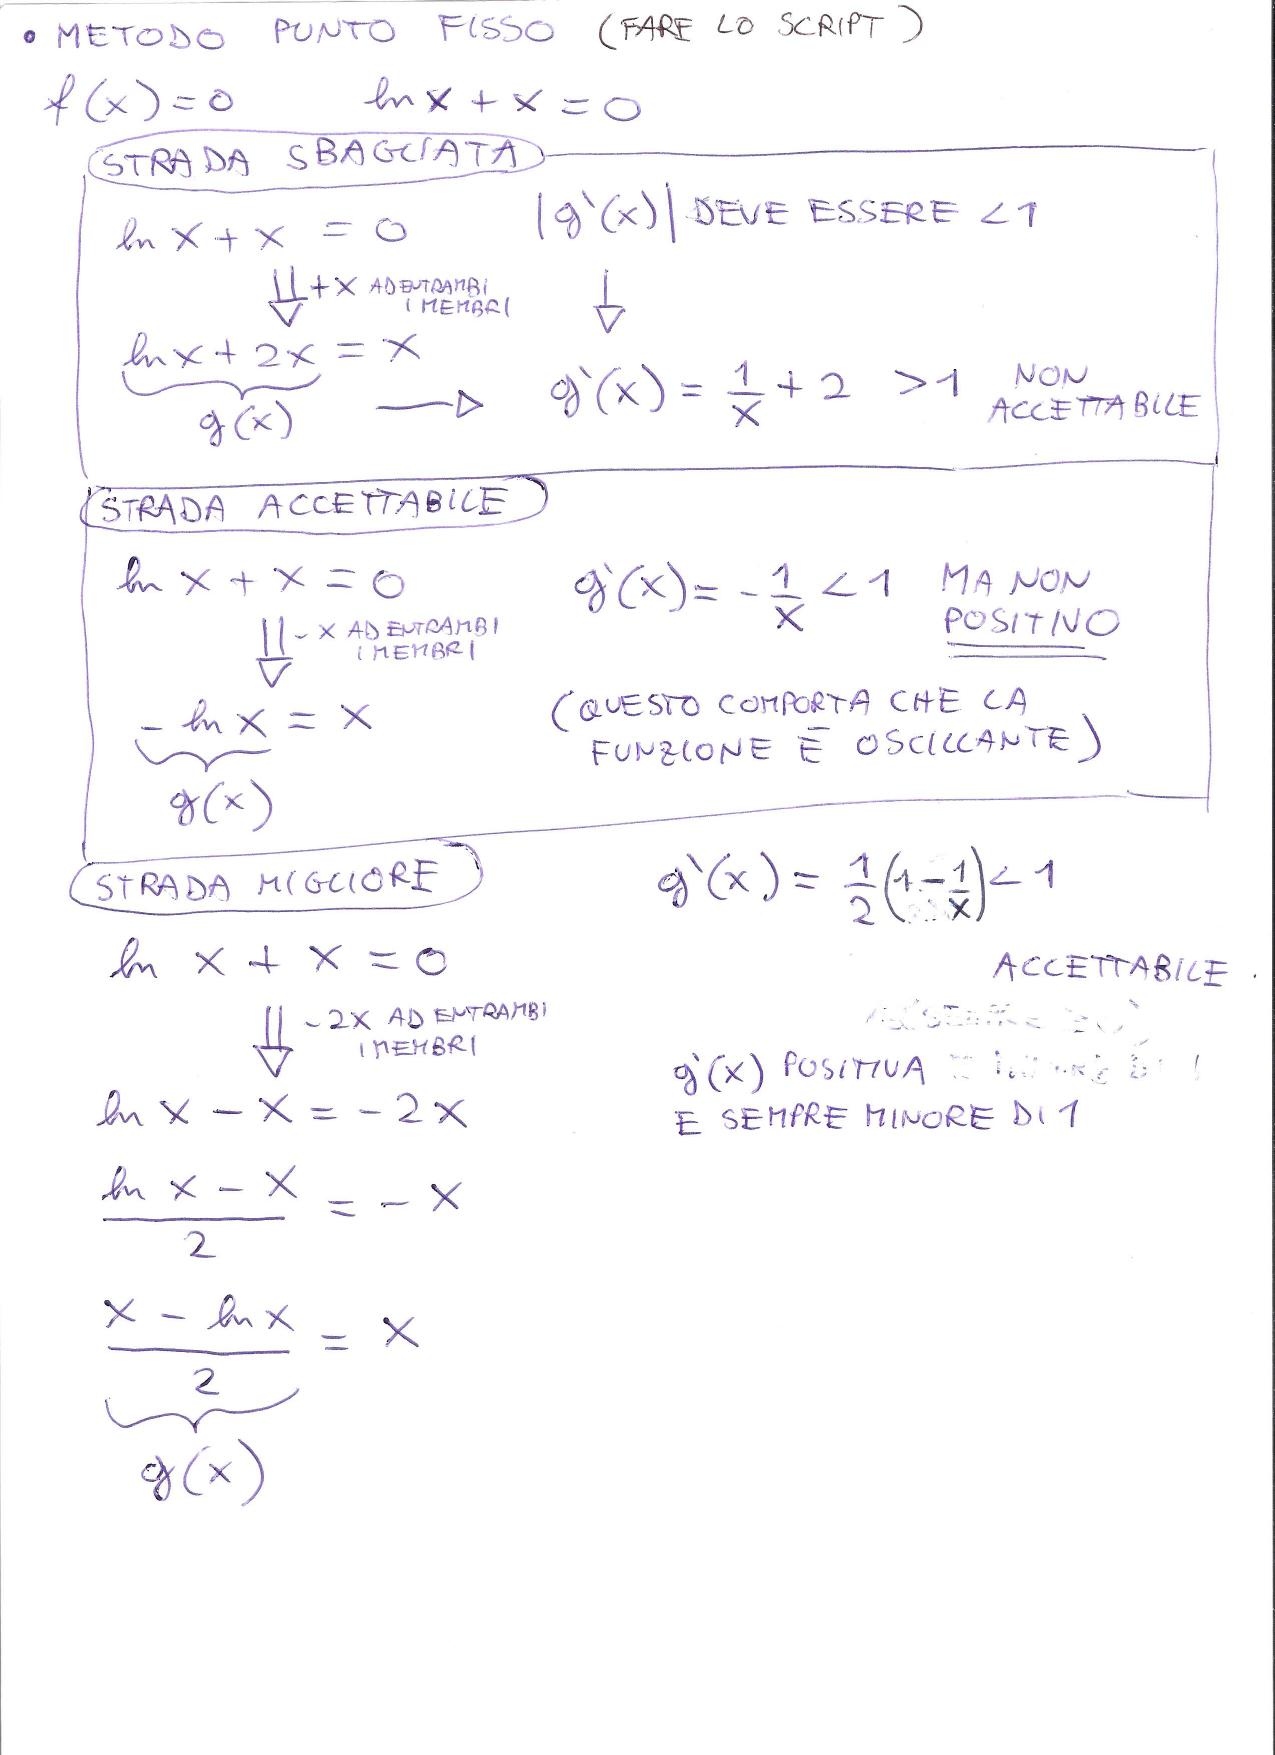 • METODO PUNTO FISSO (FARE LO SCRIPT)
f(x)=0 ln x + x = 0
STRADA SBAGLIATA
ln x + x = 0 |g'(x)| DEVE ESSERE < 1
⇓ +x AD ENTRAMBI
I MEMBRI
ln x + 2x = x
g'(x) = 1/x + 2 > 1 NON
ACCETTABILE
g(x)
STRADA ACCETTABILE
ln x + x = 0 g'(x) = - 1/x < 1 MA NON
POSITIVO
⇓ -x AD ENTRAMBI
I MEMBRI
- ln x = x (QUESTO COMPORTA CHE LA
FUNZIONE È OSCILLANTE)
g(x)
STRADA MIGLIORE g'(x) = 1/2 (1 - 1/x) < 1
ln x + x = 0
ACCETTABILE.
⇓ -2x AD ENTRAMBI
I MEMBRI
g'(x) POSITIVA
E SEMPRE MINORE DI 1
ln x - x = -2x
(ln x - x)/2 = -x
(x - ln x)/2 = x
g(x)